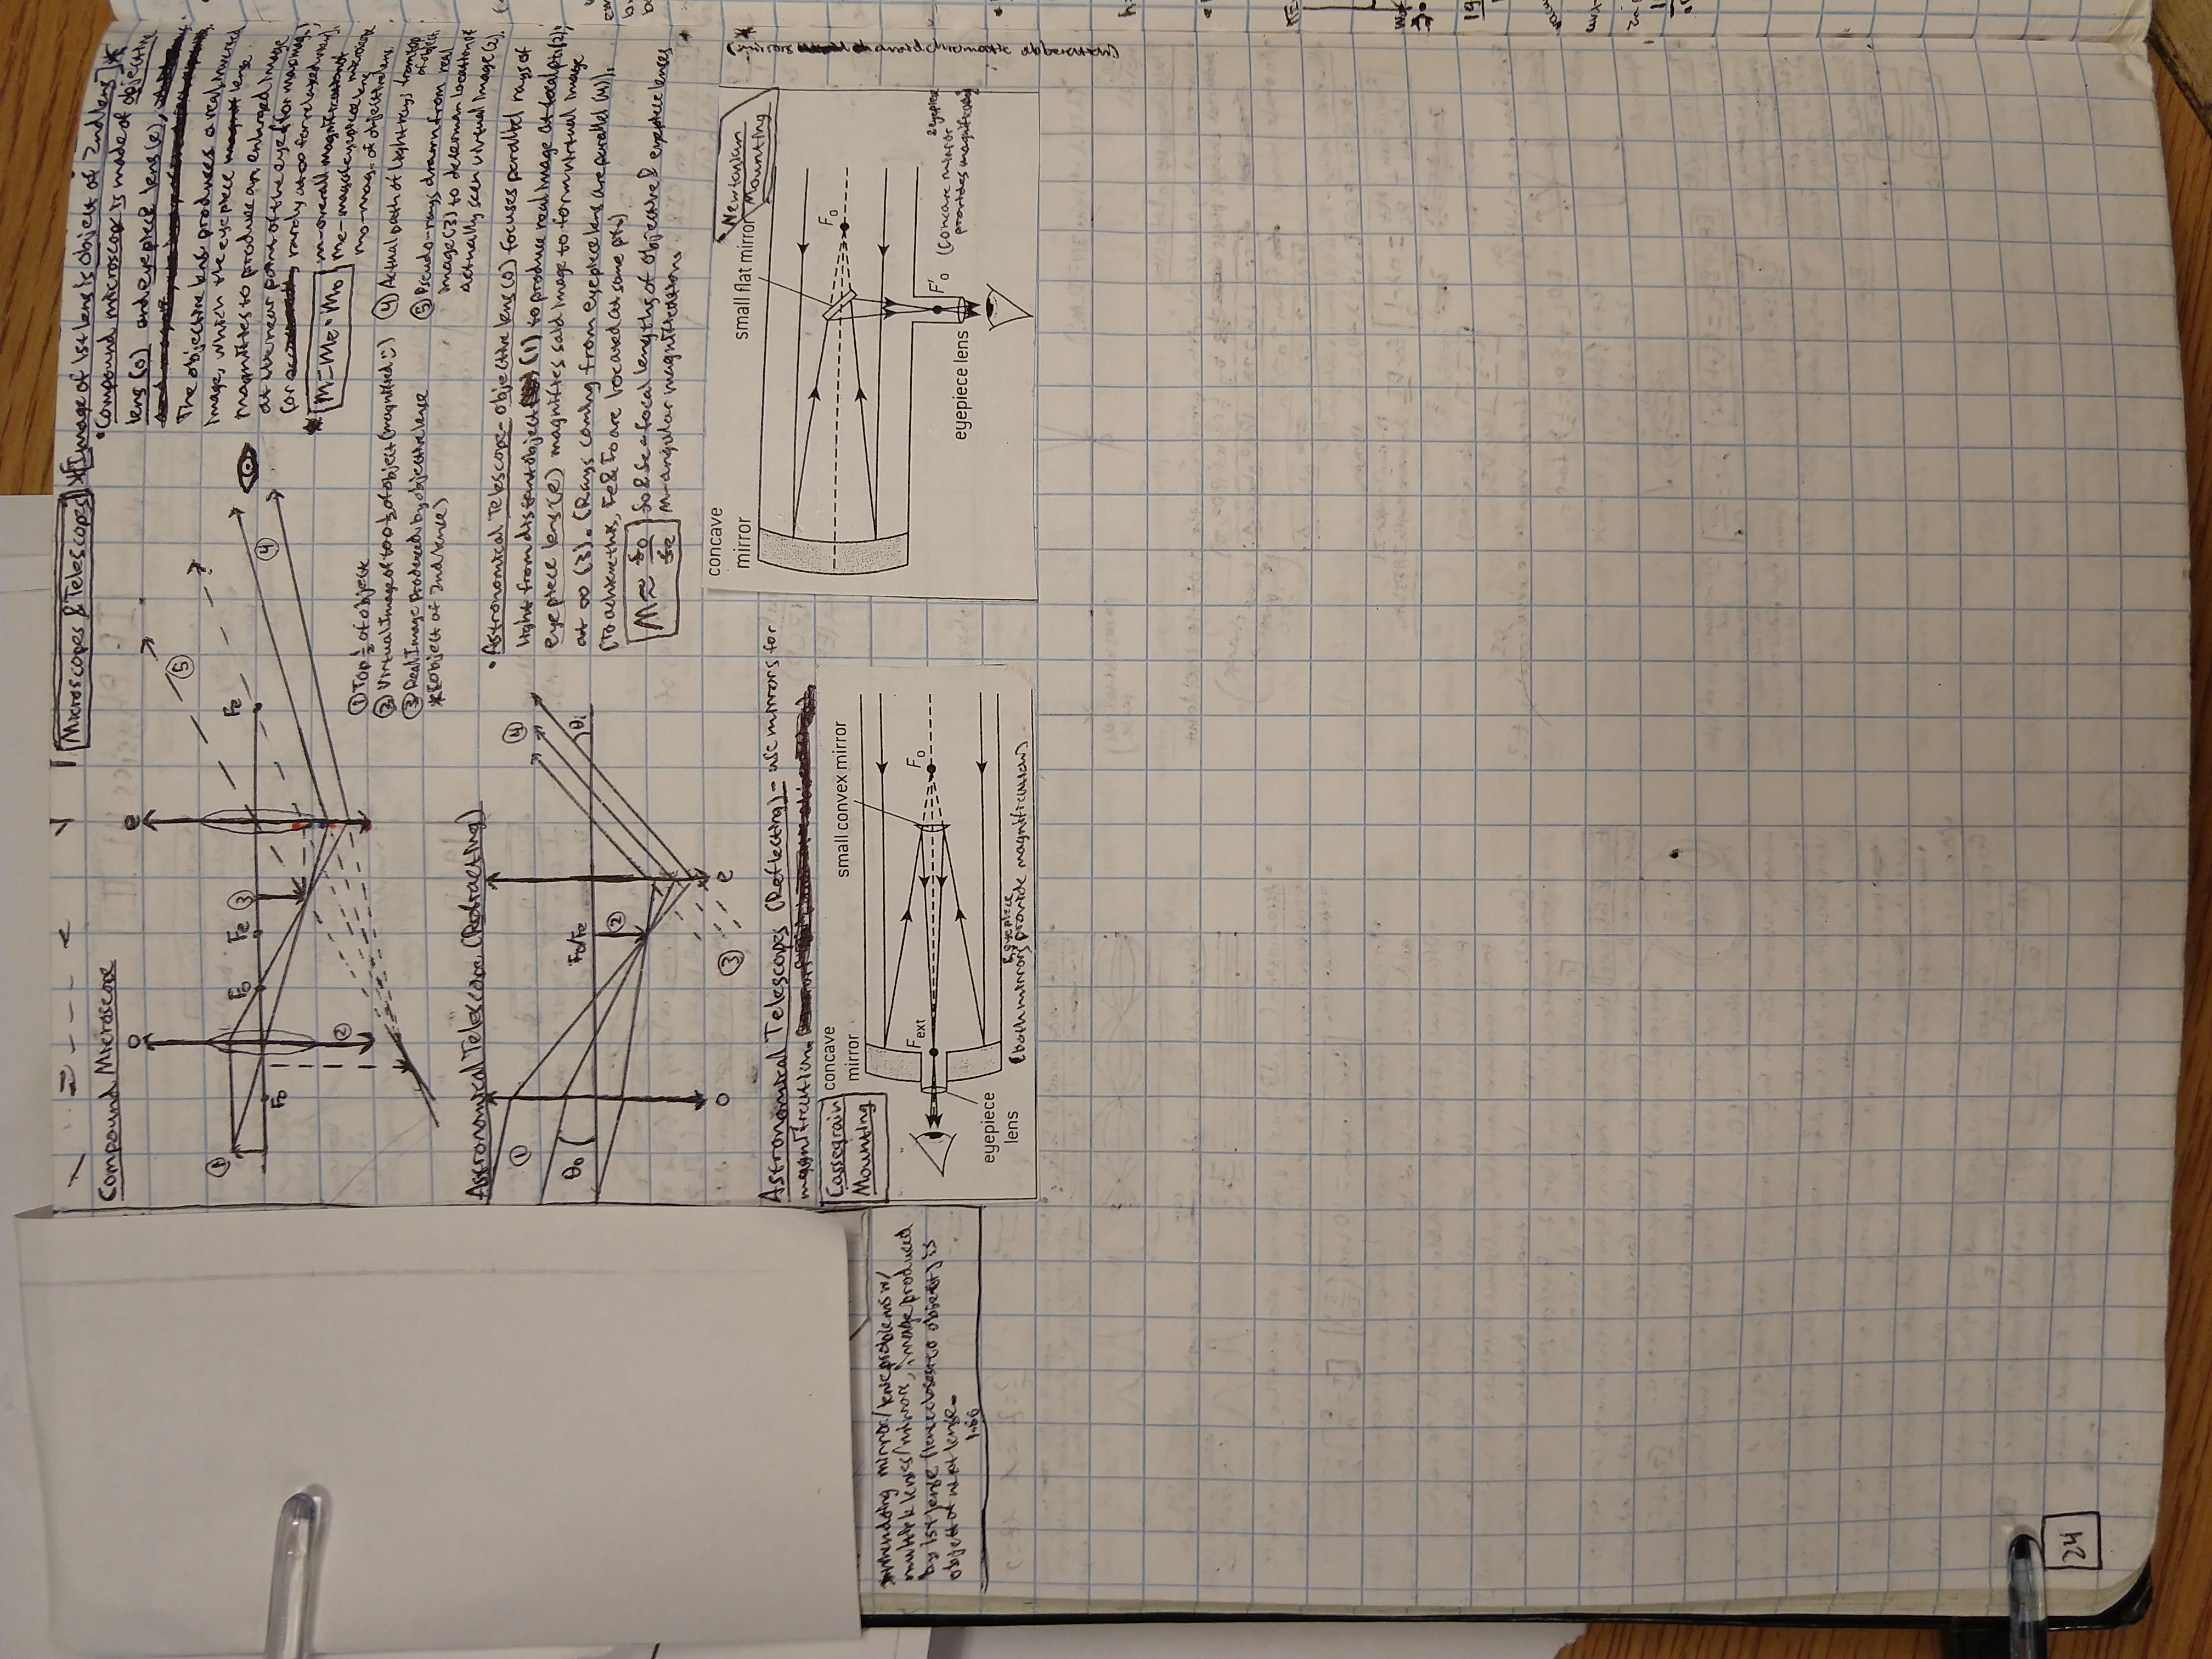 Microscopes & Telescopes *[Image of 1st lens is object of 2nd lens]*
Compound Microscope
o
e
1
Fo
Fo
Fe
3
Fe
5
4
2
• Compound microscope is made of objective
lens (o) and eyepiece lens (e),
The objective lens produces a real inverted
image, which the eyepiece lense
magnifies to produce an enlarged image
at the near point of the eye (for max mag.)
(or rarely at ∞ for relaxed
* M=Me•Mo
m-overall magnification of microscope
Me-mag of eyepiece lens
mo-mag. of objective lens.
① Top ½ of object
② Virtual Image of top ½ of object (magnified :)
③ Real Image produced by objective lense
*(object of 2nd lense)
④ Actual path of light rays from top of object.
⑤ Pseudo-rays drawn from real
image (3) to determan location of
actually seen virtual image (2).
Astronomical Telescope (Refracting)
1
θo
Fo/Fe
2
4
θi
3
o
e
• Astronomical Telescope- objective lens (o) focuses parallel rays of
light from distant object (1) to produce real image at focal pt. (2);
eyepiece lens (e) magnifies said image to form virtual image
at ∞ (3). (Rays coming from eyepiece lens are parallel (4)).
(To achieve this, Fe & Fo are located at same pt.)
M≈ fo/fe fo & fe - focal lengths of objective & eyepiece lenses
M-angular magnification.
Astronomical Telescopes (Reflecting) - use mirrors for
magnification.
Cassegrain
Mounting
concave
mirror
small convex mirror
Fext
Fo
eyepiece
lens
& eyepiece
(both mirrors provide magnification)
concave
mirror
small flat mirror
Newtonian
Mounting
Fo
F'o
eyepiece lens
& eyepiece
(concave mirror
provides magnification)
* (mirrors avoid chromatic abberation)
*when doing mirror/lense problems w/
multiple lenses/mirrors, image produced
by 1st lense (lense closest to object) is
object of next lense.
24